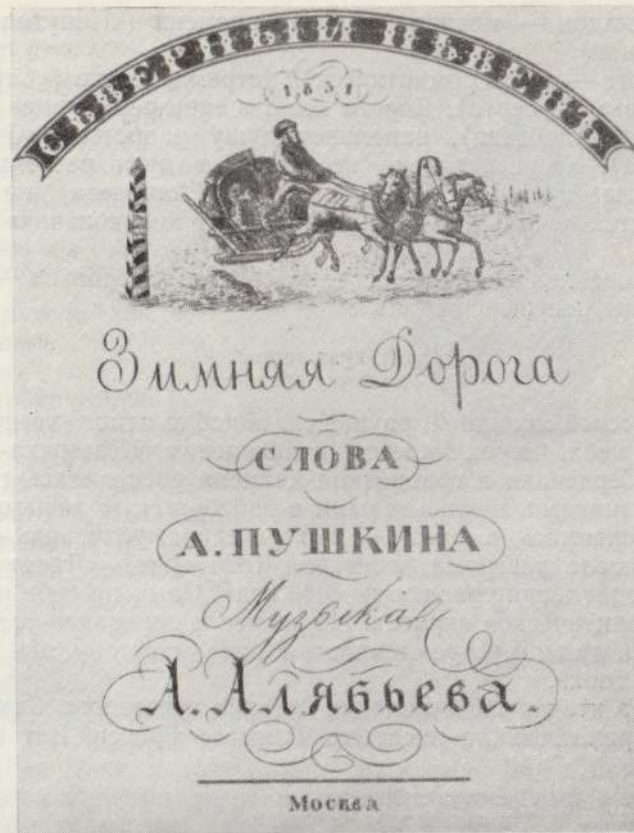 СѢВЕРНЫЙ ПѢВЕЦЪ
1831
Зимняя Дорога
СЛОВА
А. ПУШКИНА
Музыка
А. Алябьева.
Москва